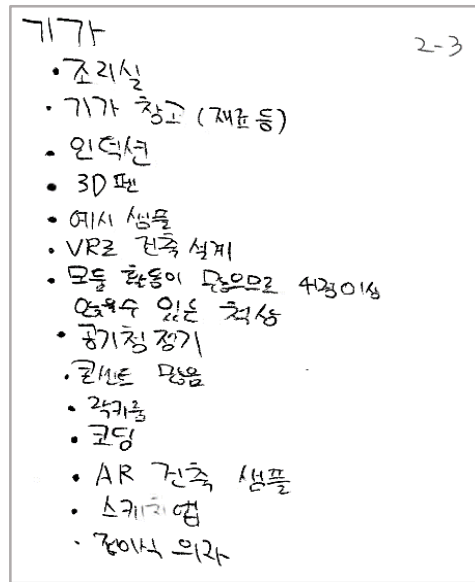 기가
2-3
• 조리실
• 기가 창고 (재료 등)
• 인덕션
• 3D 펜
• 예시 샘플
• VR로 건축 설계
• 모둠 활동이 많으므로 4명이상
앉을수 있는 책상
• 공기청정기
• 콘센트 많음
• 락카룸
• 코딩
• AR 건축 샘플
• 스케치앱
• 접이식 의자